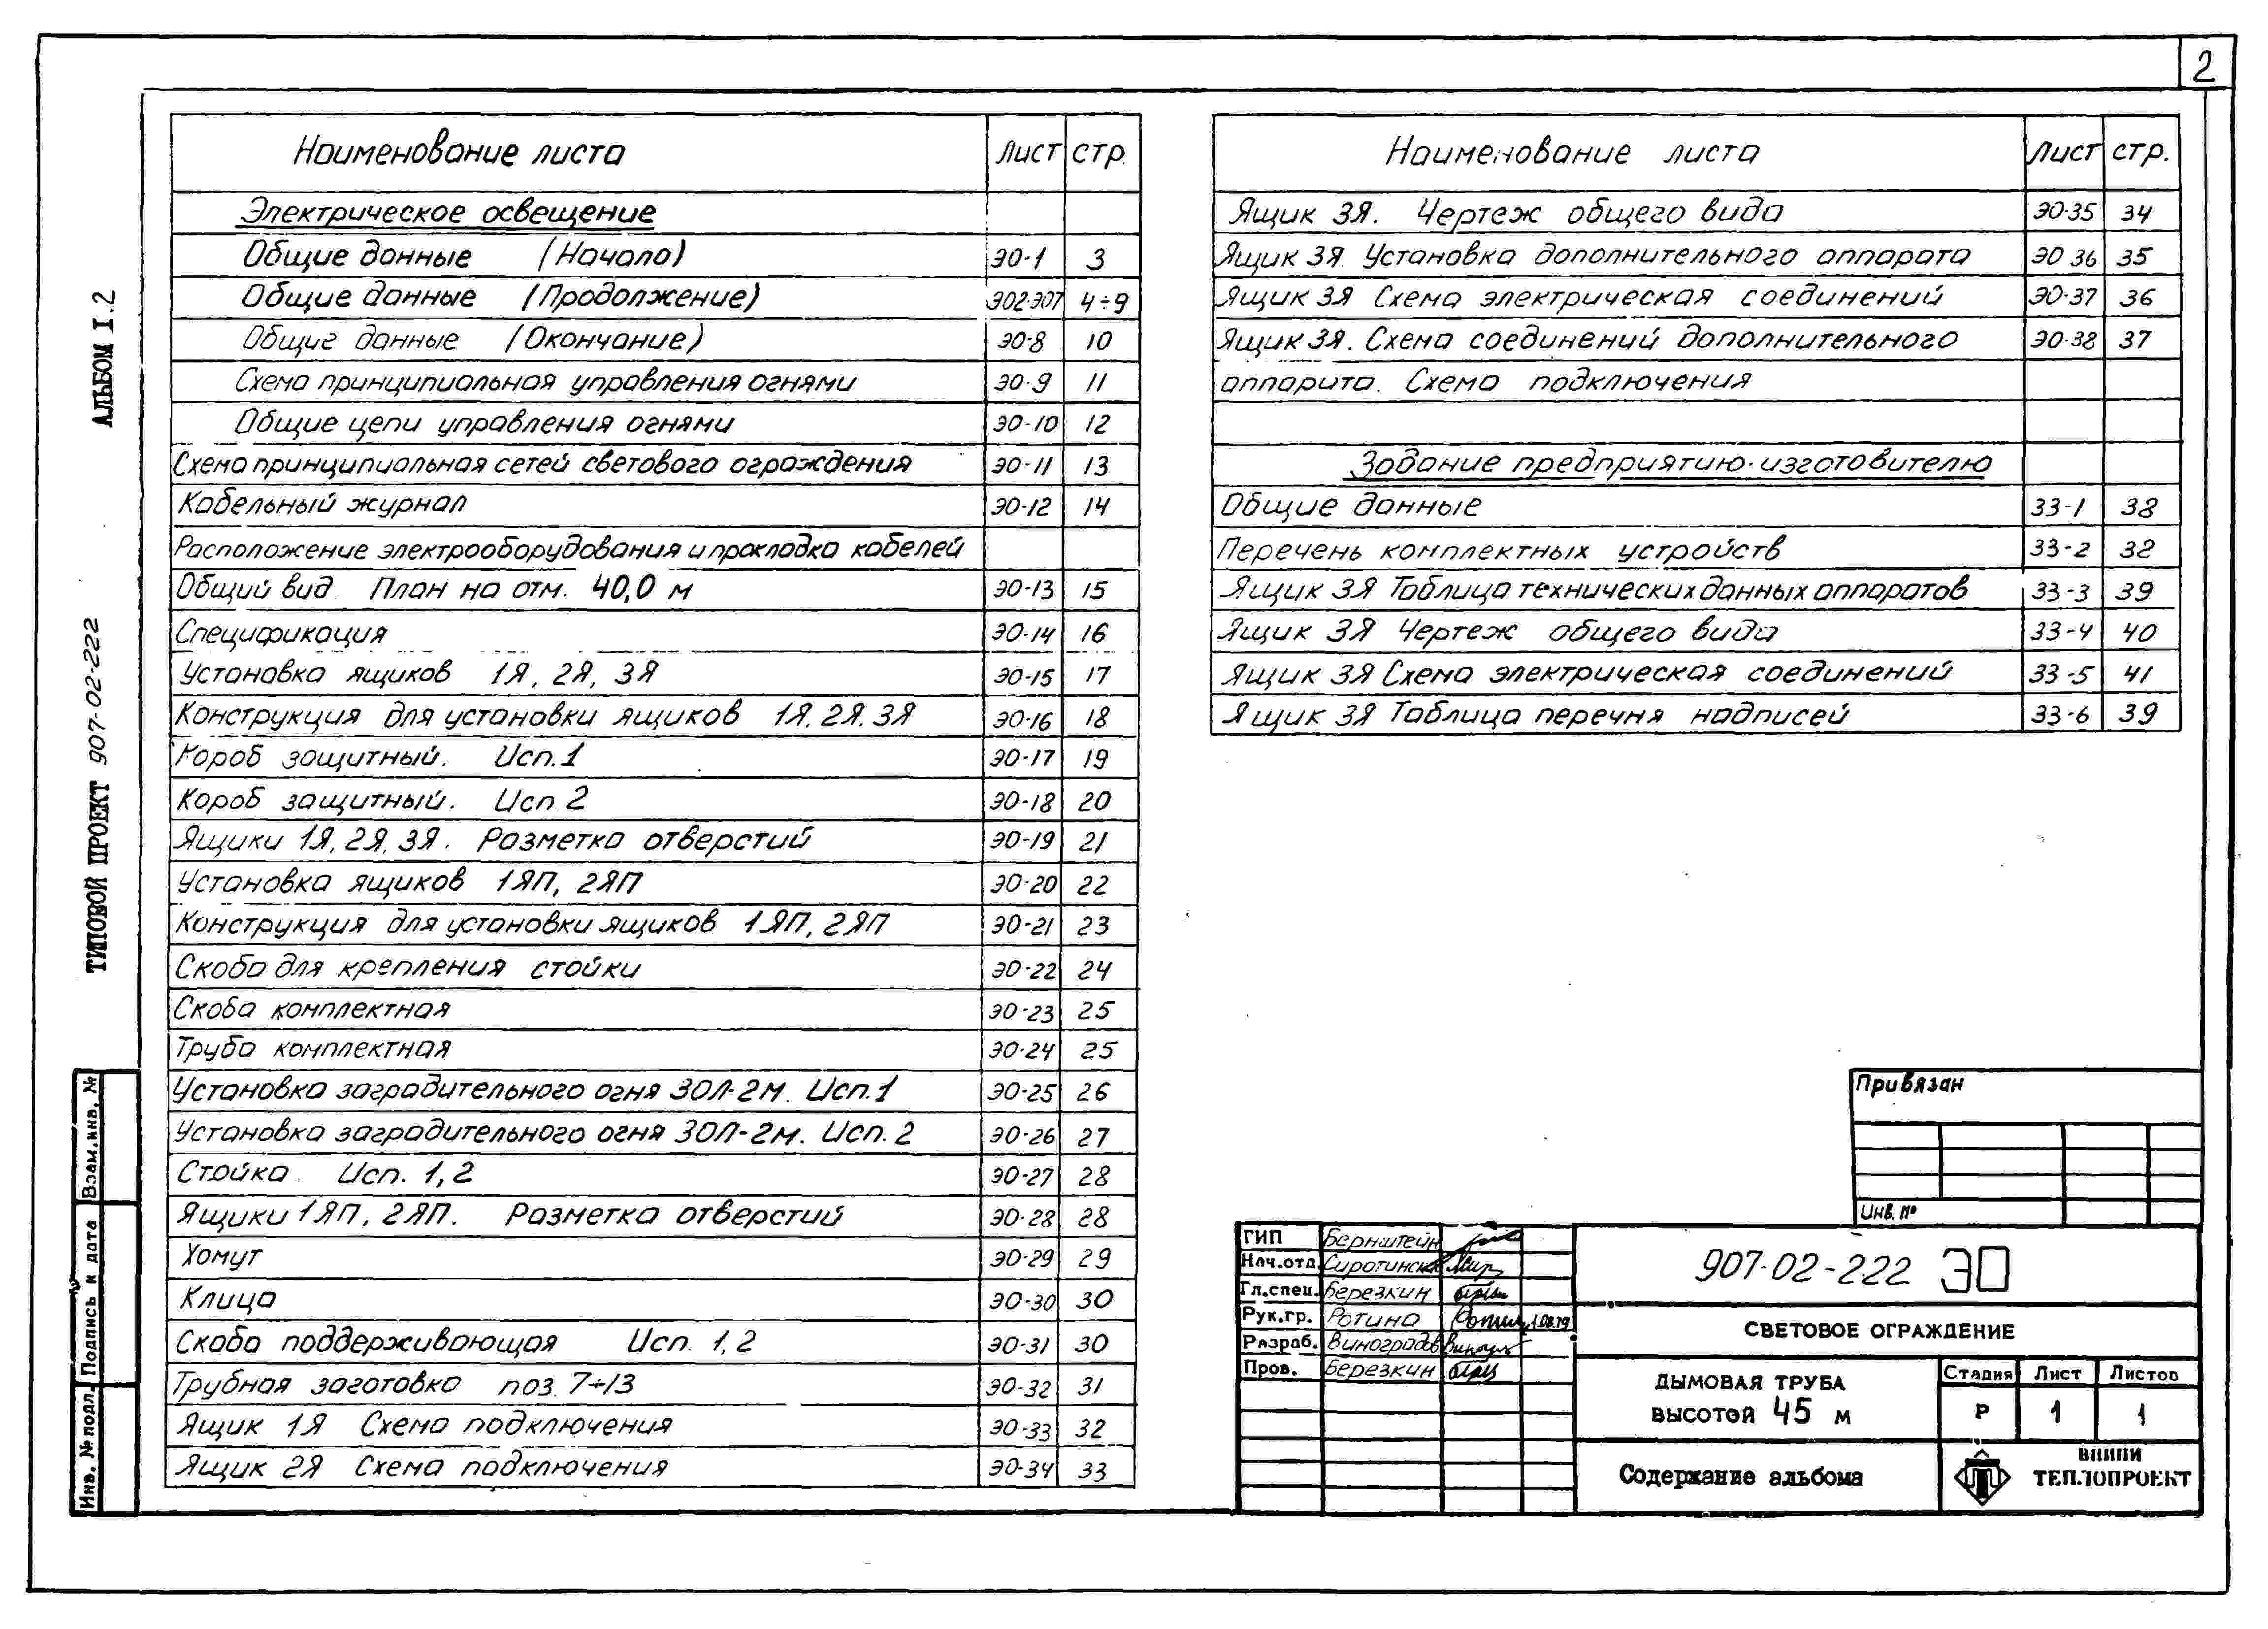 2
АЛЬБОМ I.2
ТИПОВОЙ ПРОЕКТ 907-02-222
Взам.инв. №
Подпись и дата
Инв. № подл.
Наименование листа Лист стр.
Электрическое освещение
Общие данные (Начало) ЭО-1 3
Общие данные (Продолжение) ЭО2÷ЭО7 4÷9
Общие данные (Окончание) ЭО-8 10
Схема принципиальная управления огнями ЭО-9 11
Общие цепи управления огнями ЭО-10 12
Схема принципиальная сетей светового ограждения ЭО-11 13
Кабельный журнал ЭО-12 14
Расположение электрооборудования и прокладка кабелей
Общий вид План на отм. 40,0 м ЭО-13 15
Спецификация ЭО-14 16
Установка ящиков 1Я, 2Я, 3Я ЭО-15 17
Конструкция для установки ящиков 1Я, 2Я, 3Я ЭО-16 18
Короб защитный. Исп.1 ЭО-17 19
Короб защитный. Исп 2 ЭО-18 20
Ящики 1Я, 2Я, 3Я. Разметка отверстий ЭО-19 21
Установка ящиков 1ЯП, 2ЯП ЭО-20 22
Конструкция для установки ящиков 1ЯП, 2ЯП ЭО-21 23
Скоба для крепления стойки ЭО-22 24
Скоба комплектная ЭО-23 25
Труба комплектная ЭО-24 25
Установка заградительного огня ЗОЛ-2м. Исп.1 ЭО-25 26
Установка заградительного огня ЗОЛ-2м. Исп. 2 ЭО-26 27
Стойка. Исп. 1, 2 ЭО-27 28
Ящики 1ЯП, 2ЯП. Разметка отверстий ЭО-28 28
Хомут ЭО-29 29
Клица ЭО-30 30
Скоба поддерживающая Исп. 1, 2 ЭО-31 30
Трубная заготовка поз. 7÷13 ЭО-32 31
Ящик 1Я Схема подключения ЭО-33 32
Ящик 2Я Схема подключения ЭО-34 33
Наименование листа Лист стр.
Ящик 3Я. Чертеж общего вида ЭО-35 34
Ящик 3Я. Установка дополнительного аппарата ЭО 36 35
Ящик 3Я Схема электрическая соединений ЭО-37 36
Ящик 3Я. Схема соединений дополнительного ЭО-38 37
аппарата. Схема подключения
Задание предприятию-изготовителю
Общие данные ЗЗ-1 38
Перечень комплектных устройств ЗЗ-2 32
Ящик 3Я Таблица технических данных аппаратов ЗЗ-3 39
Ящик 3Я Чертеж общего вида ЗЗ-4 40
Ящик 3Я Схема электрическая соединений ЗЗ-5 41
Ящик 3Я Таблица перечня надписей ЗЗ-6 39
Привязан
Инв. №
ГИП Бернштейн
Нач.отд. Сиротински
Гл.спец. Березкин
Рук.гр. Ротина
Разраб. Виноградов
Пров. Березкин
907-02-222 ЭО
СВЕТОВОЕ ОГРАЖДЕНИЕ
ДЫМОВАЯ ТРУБА
ВЫСОТОЙ 45 м
Стадия Лист Листов
Р 1 1
Содержание альбома
ВНИПИ
ТЕПЛОПРОЕКТ